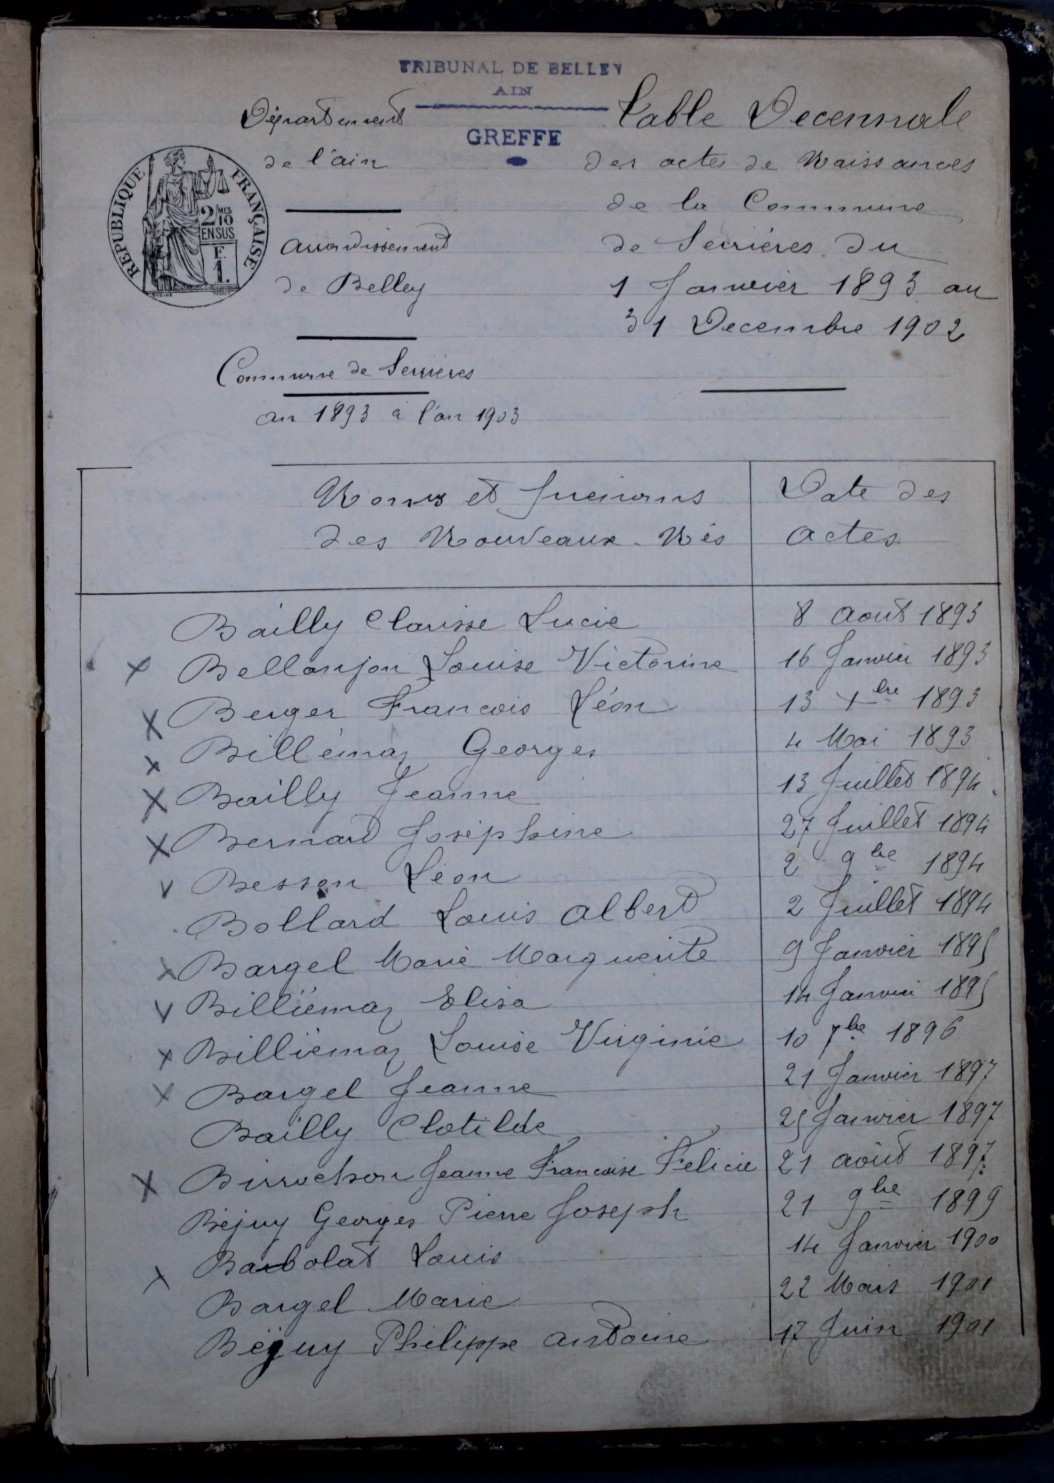 TRIBUNAL DE BELLEY
AIN
GREFFE
Département
de l'ain
RÉPUBLIQUE FRANÇAISE
2/10 MES
EN SUS
F.
1.
arrondissement
de Belley
Commune de Serrières
an 1893 à l'an 1903
Table Decennale
des actes de Naissances
de la Commune
de Serrières du
1 Janvier 1893 au
31 Decembre 1902
Noms et Prenoms
des Nouveaux-Nés
Date des
actes
Bailly Clarisse Lucie 8 aout 1893
x Bellonjon Louise Victorine 16 Janvier 1893
x Berger Francois Léon 13 bre 1893
x Billémaz Georges 4 Mai 1893
x Bailly Jeanne 13 Juillet 1894
x Bernard Joséphine 27 Juillet 1894
v Besson Léon 2 9bre 1894
Bollard Louis Albert 2 Juillet 1894
x Bargel Marie Marguerite 9 Janvier 1895
v Billiémaz Elisa 14 Janvier 1895
x Billiémaz Louise Virginie 10 7bre 1896
x Bargel Jeanne 21 Janvier 1897
Bailly Clotilde 25 Janvier 1897
x Birrochon Jeanne Francoise Felicie 21 août 1897
Béjuy Georges Pierre Joseph 21 9bre 1899
x Barbolat Louis 14 Janvier 1900
Bargel Marie 22 Mars 1901
Béjuy Philippe antoine 17 Juin 1901